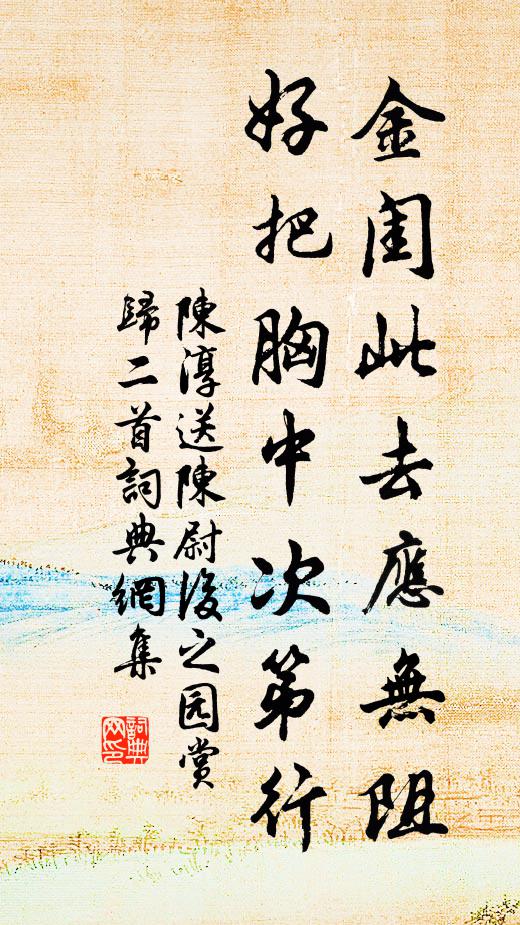 金閨此去應無阻
好把胸中次第行
陳淳送陳尉後之园赏
歸二首詞典網集
詞典網印